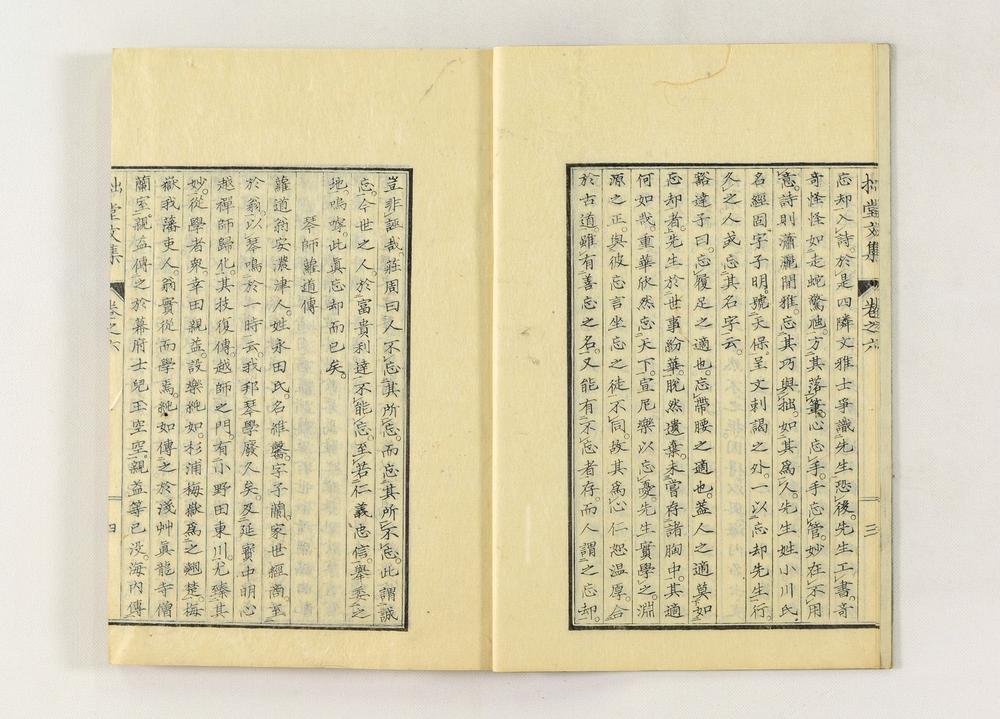 拙堂文集 卷之六 三
忘却入詩。於是四隣文雅士爭識先生恐後。先生工書。奇
奇怪怪如走蛇驚虺。方其落筆。心忘手。手忘管。妙在不用
意。詩則瀟灑閒雅。忘其巧與拙。如其爲人。先生姓小川氏。
名經固字子明。號天保。呈文刺謁之外。一以忘却先生行。
久之人或忘其名字云。
豁達子曰。忘履足之適也。忘帶腰之適也。蓋人之適莫如
忘却者。先生於世事紛華。脫然遺棄。未嘗存諸胸中。其適
何如哉。重華欣然忘天下。宣尼樂以忘憂。先生實學之。淵
源之正。與彼忘言坐忘之徒不同。故其爲心仁恕温厚。合
於古道。雖有善忘之名。又能有不忘者存。而人謂之忘却。
豈非誣哉。莊周曰。人不忘其所忘。而忘其所不忘。此謂誠
忘。今世之人。於富貴利達不能忘。至若仁義忠信。舉委之
地。嗚嘑。此眞忘却而已矣。
琴師蘿道傳
蘿道翁安濃津人。姓永田氏。名維馨字子蘭。家世經商。至
於翁。以琴鳴於一時云。我邦琴學廢久矣。及延寶中明心
越禪師歸化。其技復傳。越師之門。有小野田東川。尤臻其
妙。從學者衆。幸田親益。設樂純如。杉浦梅嶽爲之翹楚。梅
嶽我藩吏人。翁實從而學焉。純如傳之於淺艸眞龍寺僧
蘭室。親益傳之於幕府士兒玉空空。親益等已沒。海内傳
拙堂文集 卷之六 四